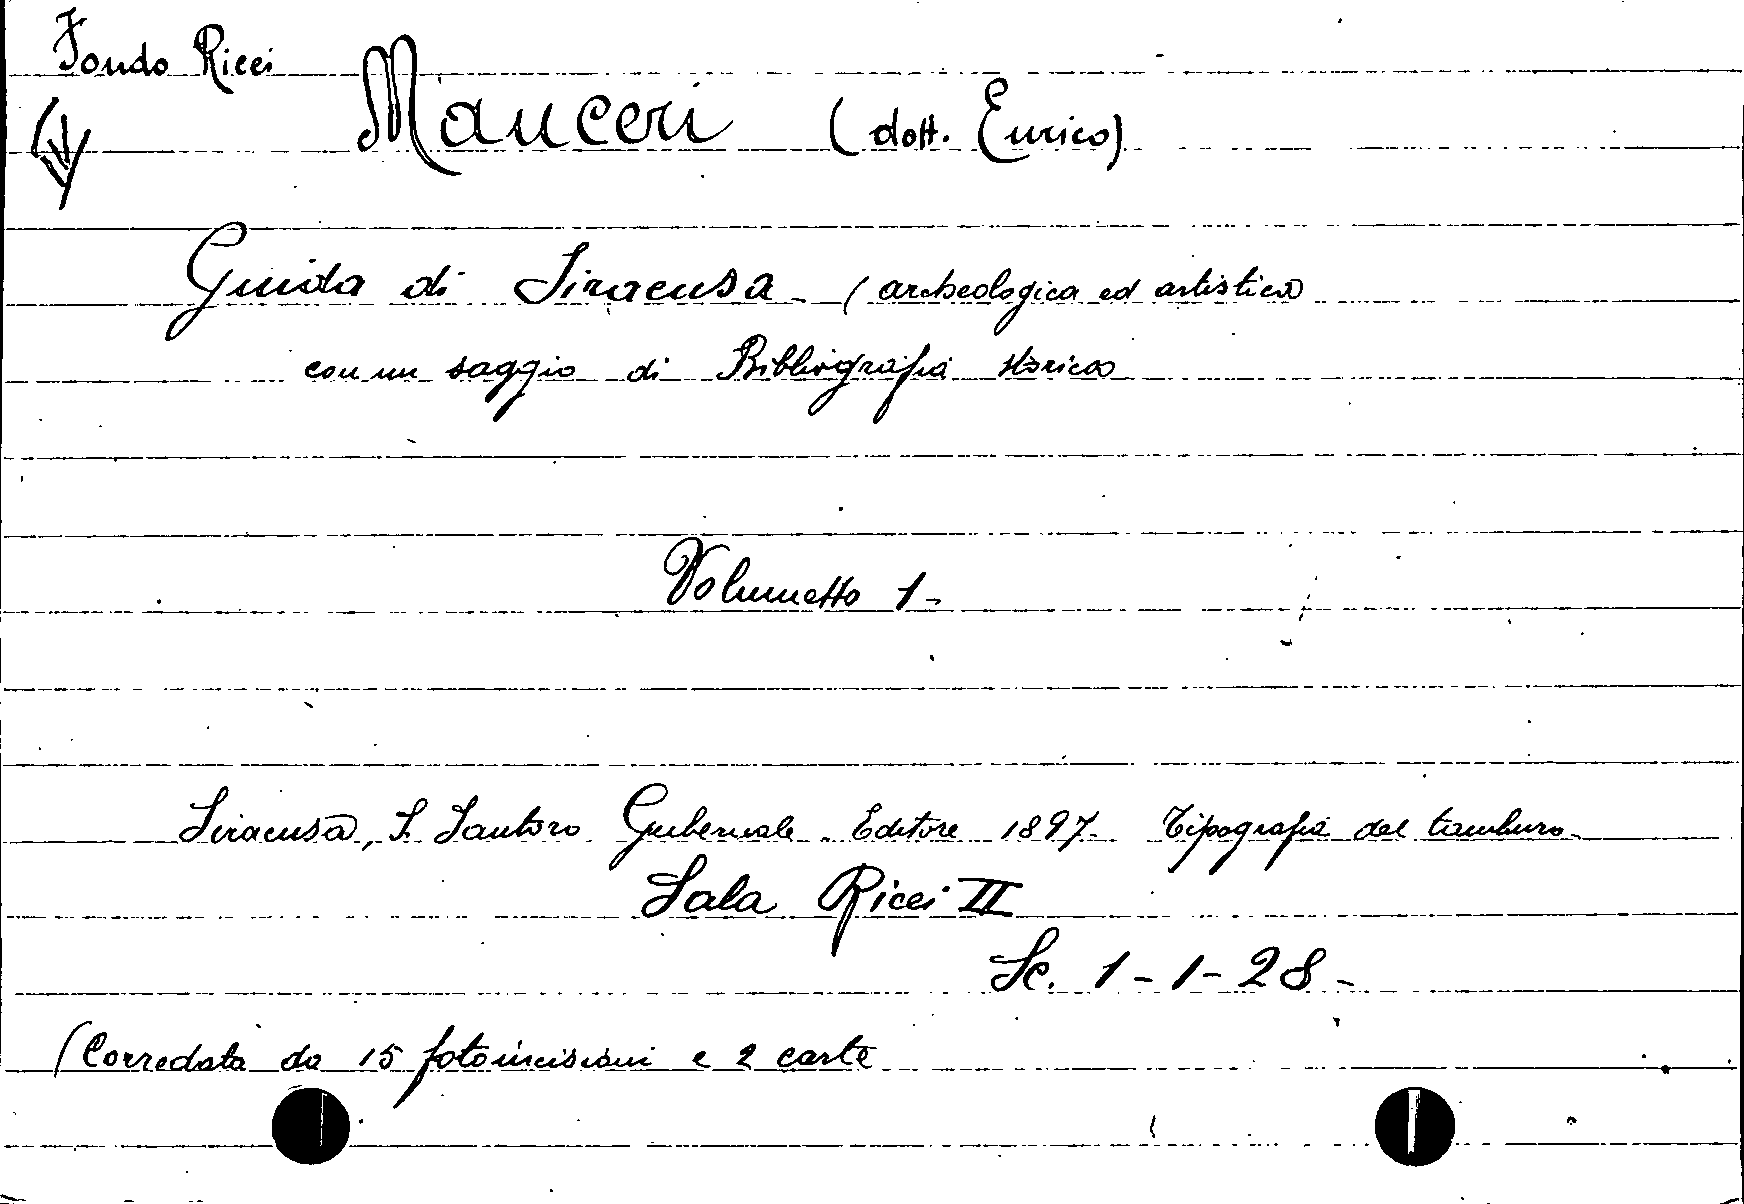 Fondo Ricci
Mauceri (dott. Enrico)
Guida di Siracusa - (archeologica ed artistica
con un saggio di Bibliografia storica
Volumetto 1-
Siracusa, S. Santoro Gubernale - Editore 1897- Tipografia del tamburo-
Sala Ricci II
Sc. 1-1-28-
(Corredata da 15 fotoincisioni e 2 carte